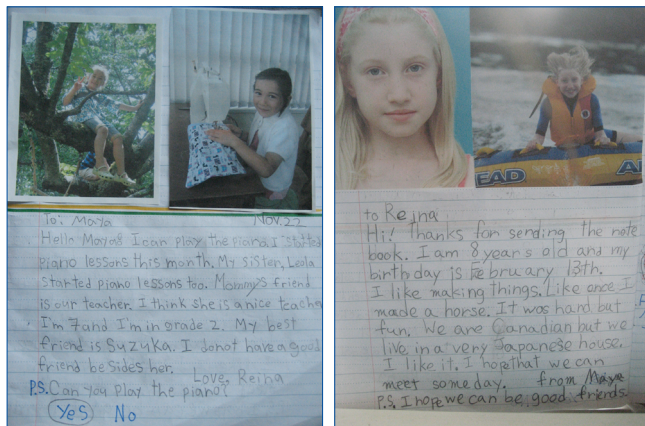 To: Maya Nov. 22
Hello Maya! I can play the piano. I started
piano lessons this month. My sister, Leola
started piano lessons too. Mommy's friend
is our teacher. I think she is a nice teacher
I'm 7 and I'm in grade 2. My best
friend is Suzuka. I donot have a good
friend besides her.
Love, Reina
P.S. Can you play the piano?
Yes No
EAD A
to Reina
Hi! Thanks for sending the note
book. I am 8 years old and my
birthday is February 13th.
I like making things. Like once I
made a horse. It was hard but
fun. We are Canadian but we
live in a very Japanese house.
I like it. I hope that we can
meet some day. from Maya
P.S. I hope we can be good friends.